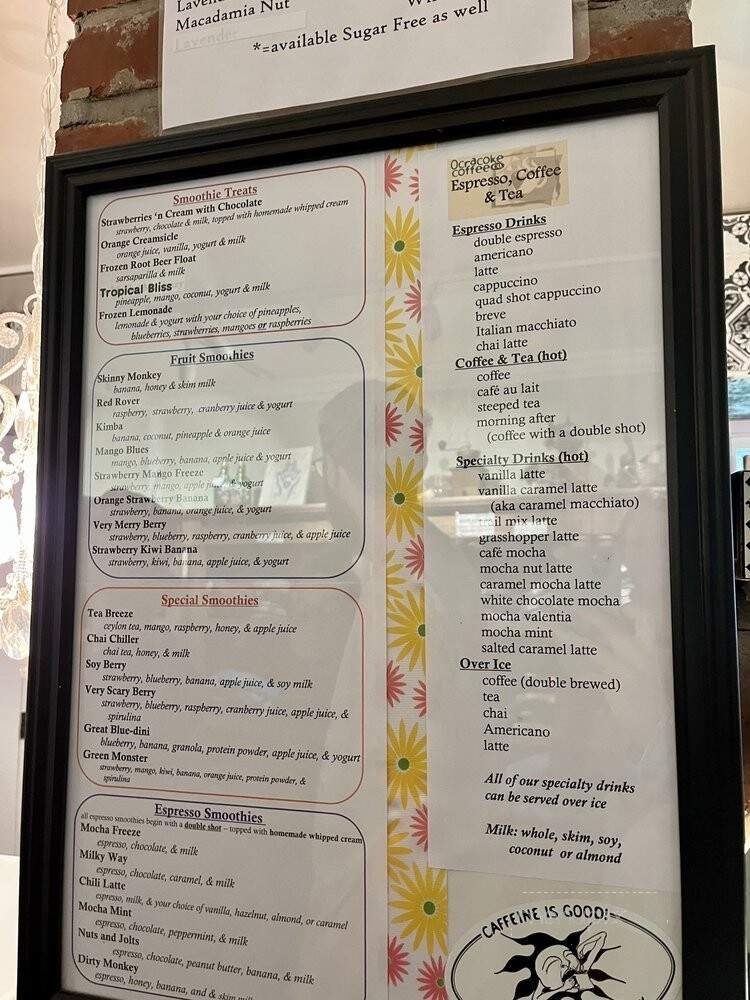 Macadamia Nut
Lavender
*=available Sugar Free as well
Smoothie Treats
Strawberries 'n Cream with Chocolate
strawberry, chocolate & milk, topped with homemade whipped cream
Orange Creamsicle
orange juice, vanilla, yogurt & milk
Frozen Root Beer Float
sarsaparilla & milk
Tropical Bliss
pineapple, mango, coconut, yogurt & milk
Frozen Lemonade
lemonade & yogurt with your choice of pineapples,
blueberries, strawberries, mangoes or raspberries
Fruit Smoothies
Skinny Monkey
banana, honey & skim milk
Red Rover
raspberry, strawberry, cranberry juice & yogurt
Kimba
banana, coconut, pineapple & orange juice
Mango Blues
mango, blueberry, banana, apple juice & yogurt
Strawberry Mango Freeze
strawberry, mango, apple juice & yogurt
Orange Strawberry Banana
strawberry, banana, orange juice, & yogurt
Very Merry Berry
strawberry, blueberry, raspberry, cranberry juice, & apple juice
Strawberry Kiwi Banana
strawberry, kiwi, banana, apple juice, & yogurt
Special Smoothies
Tea Breeze
ceylon tea, mango, raspberry, honey, & apple juice
Chai Chiller
chai tea, honey, & milk
Soy Berry
strawberry, blueberry, banana, apple juice, & soy milk
Very Scary Berry
strawberry, blueberry, raspberry, cranberry juice, apple juice, &
spirulina
Great Blue-dini
blueberry, banana, granola, protein powder, apple juice, & yogurt
Green Monster
strawberry, mango, kiwi, banana, orange juice, protein powder, &
spirulina
Espresso Smoothies
all espresso smoothies begin with a double shot – topped with homemade whipped cream
Mocha Freeze
espresso, chocolate, & milk
Milky Way
espresso, chocolate, caramel, & milk
Chili Latte
espresso, milk, & your choice of vanilla, hazelnut, almond, or caramel
Mocha Mint
espresso, chocolate, peppermint, & milk
Nuts and Jolts
espresso, chocolate, peanut butter, banana, & milk
Dirty Monkey
espresso, honey, banana, and & skim milk
Ocracoke
coffee co
Espresso, Coffee
& Tea
Espresso Drinks
double espresso
americano
latte
cappuccino
quad shot cappuccino
breve
Italian macchiato
chai latte
Coffee & Tea (hot)
coffee
café au lait
steeped tea
morning after
(coffee with a double shot)
Specialty Drinks (hot)
vanilla latte
vanilla caramel latte
(aka caramel macchiato)
trail mix latte
grasshopper latte
café mocha
mocha nut latte
caramel mocha latte
white chocolate mocha
mocha valentia
mocha mint
salted caramel latte
Over Ice
coffee (double brewed)
tea
chai
Americano
latte
All of our specialty drinks
can be served over ice
Milk: whole, skim, soy,
coconut or almond
CAFFEINE IS GOOD!